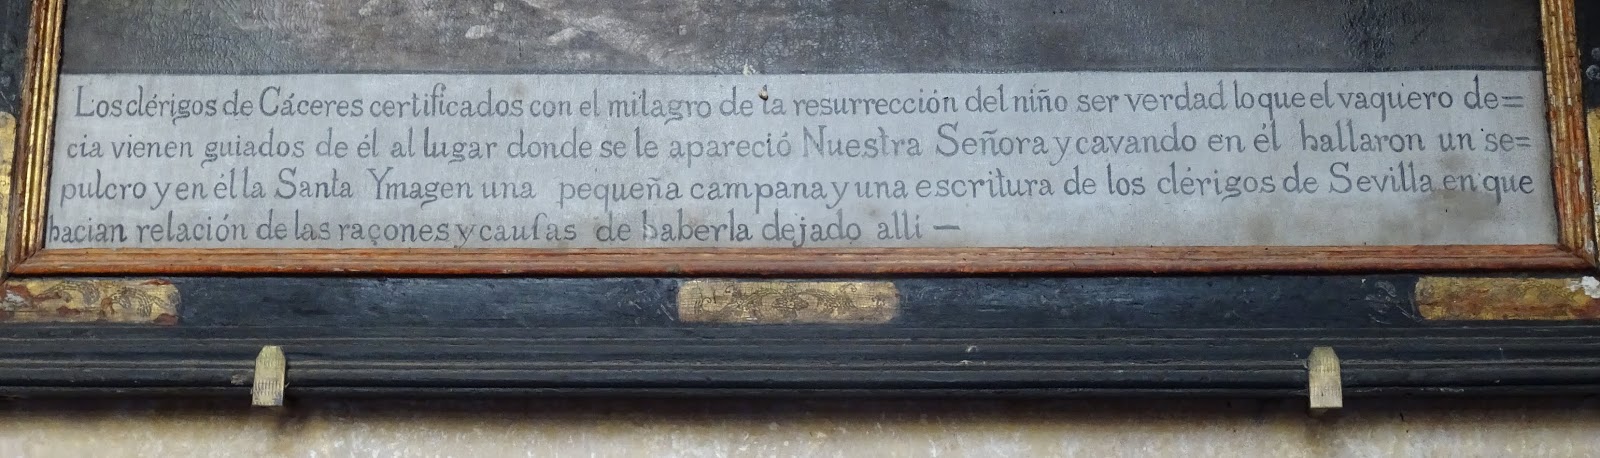 Los clérigos de Cáceres certificados con el milagro de la resurrección del niño ser verdad lo que el vaquero de=
cia vienen guiados de él al lugar donde se le apareció Nuestra Señora y cavando en él hallaron un se=
pulcro y en él la Santa Ymagen una pequeña campana y una escritura de los clérigos de Sevilla en que
hacian relación de las raçones y caufas de haberla dejado allí —